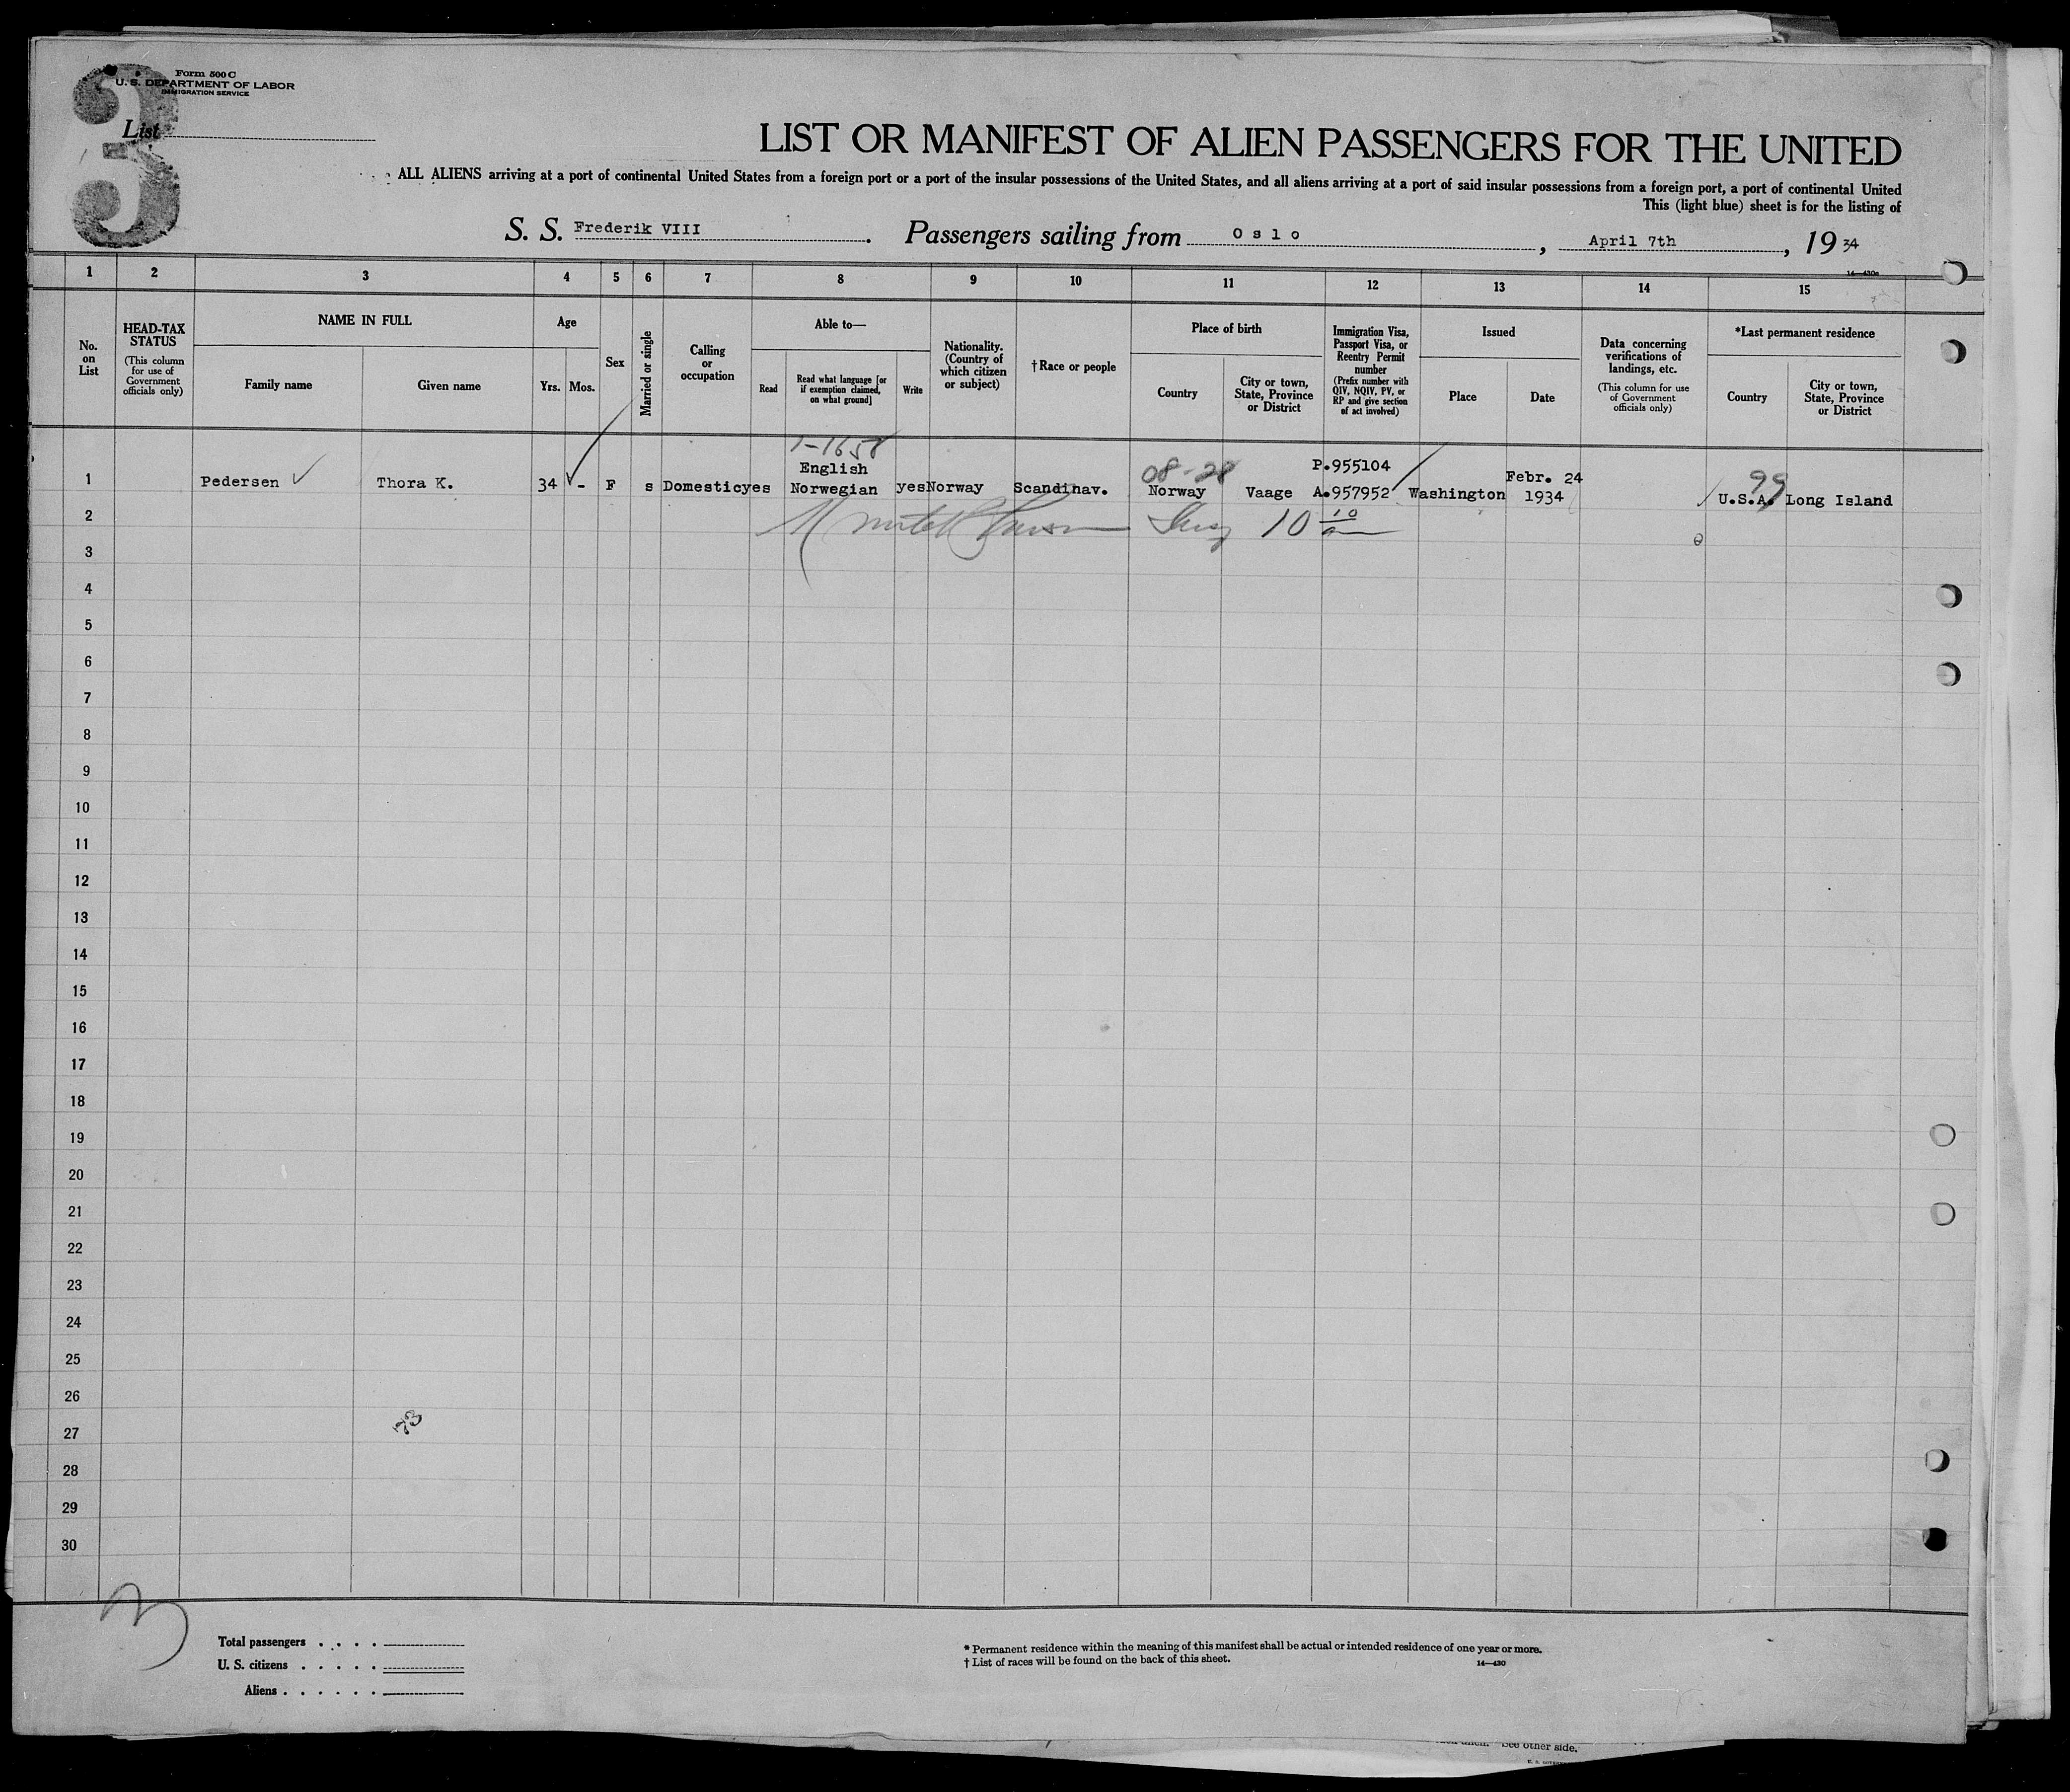 3
Form 500 C
U. S. DEPARTMENT OF LABOR
IMMIGRATION SERVICE
List
LIST OR MANIFEST OF ALIEN PASSENGERS FOR THE UNITED
ALL ALIENS arriving at a port of continental United States from a foreign port or a port of the insular possessions of the United States, and all aliens arriving at a port of said insular possessions from a foreign port, a port of continental United
This (light blue) sheet is for the listing of
S. S. Frederik VIII. Passengers sailing from Oslo, April 7th, 1934
14—430a
1 2 3 4 5 6 7 8 9 10 11 12 13 14 15
No. on List
HEAD-TAX STATUS
(This column for use of Government officials only)
NAME IN FULL
Family name Given name
Age
Yrs. Mos.
Sex
Married or single
Calling or occupation
Able to—
Read
Read what language [or if exemption claimed, on what ground]
Write
Nationality. (Country of which citizen or subject)
† Race or people
Place of birth
Country
City or town, State, Province or District
Immigration Visa, Passport Visa, or Reentry Permit number
(Prefix number with QIV, NQIV, PV, or RP and give section of act involved)
Issued
Place Date
Data concerning verifications of landings, etc.
(This column for use of Government officials only)
*Last permanent residence
Country
City or town, State, Province or District
1-1658
English 08-28 P.955104 Febr. 24 99
1 Pedersen Thora K. 34 - F s Domestic yes Norwegian yes Norway Scandinav. Norway Vaage A.957952 Washington 1934 U.S.A. Long Island
2 10
3
4
5
6
7
8
9
10
11
12
13
14
15
16
17
18
19
20
21
22
23
24
25
26
27
28
29
30
3
Total passengers . . . .
U. S. citizens . . . . .
Aliens . . . . . .
* Permanent residence within the meaning of this manifest shall be actual or intended residence of one year or more.
† List of races will be found on the back of this sheet.
14—430
See other side.